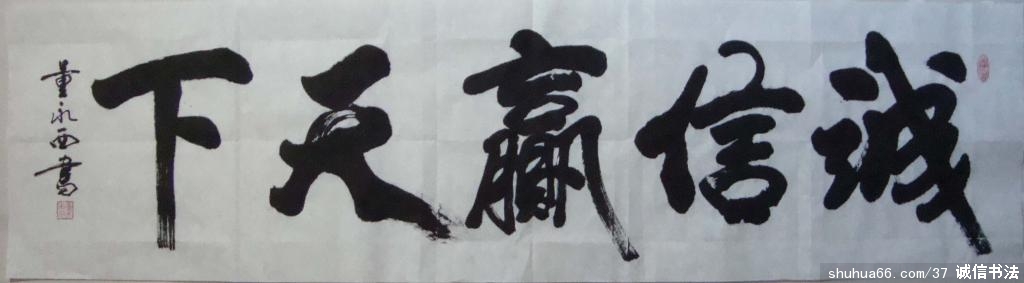 诚信赢天下
董永西書
shuhua66.com/37 诚信书法